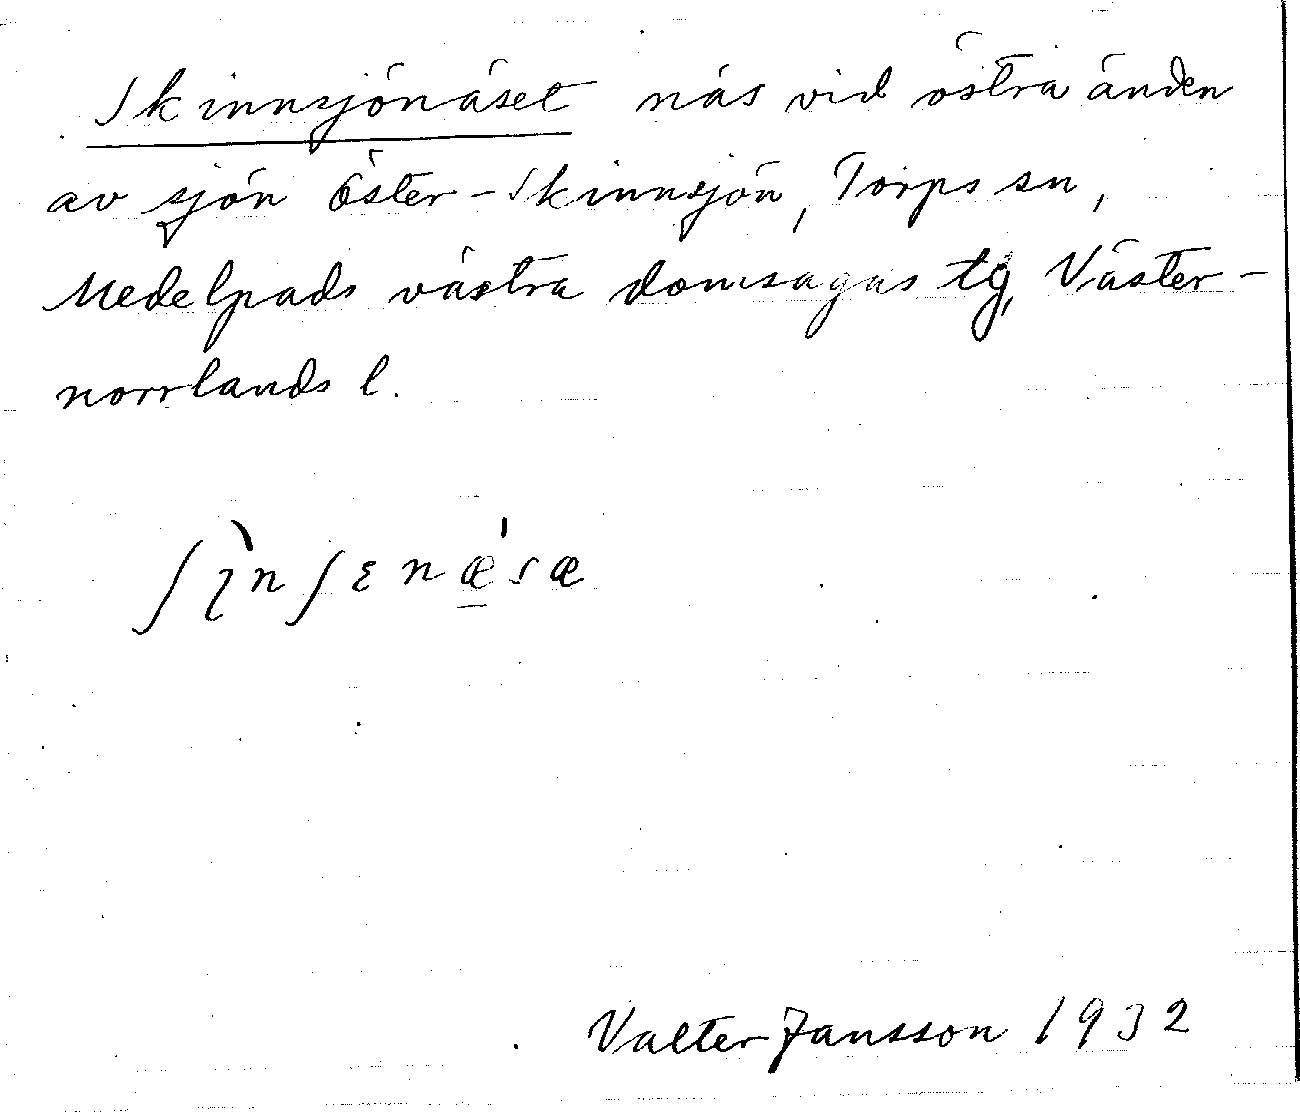 Skinnsjönäset näs vid östra änden
av sjön Öster-Skinnsjön, Torps sn,
Medelpads västra domsagas tg, Väster-
norrlands l.
ʃɩ̀nʃɛnǽsæ
Valter Jansson 1932